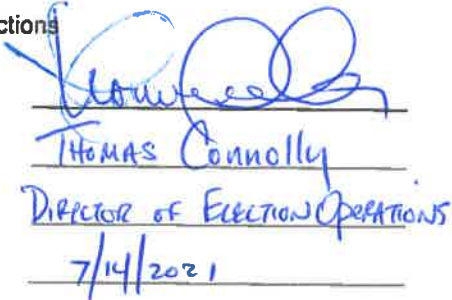 ctions
THOMAS Connolly
DIRECTOR OF ELECTION OPERATIONS
7/14/2021